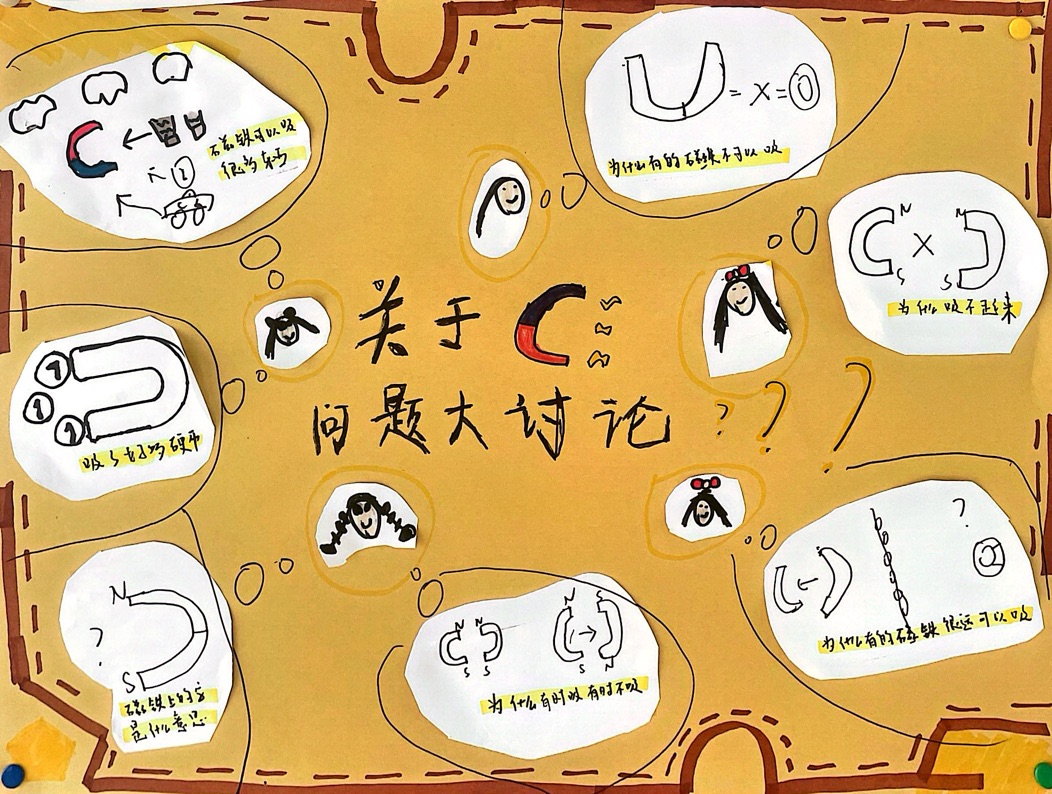 磁铁可以吸
很多东西
为什么有的磁铁不可以吸
N N
S S
为什么吸不起来
关于
问题大讨论???
吸了好多硬币
1
1
1
N
?
S
磁铁上的字
是什么意思
N N S
S S N
为什么有时吸有时不吸
?
为什么有的磁铁很远可以吸